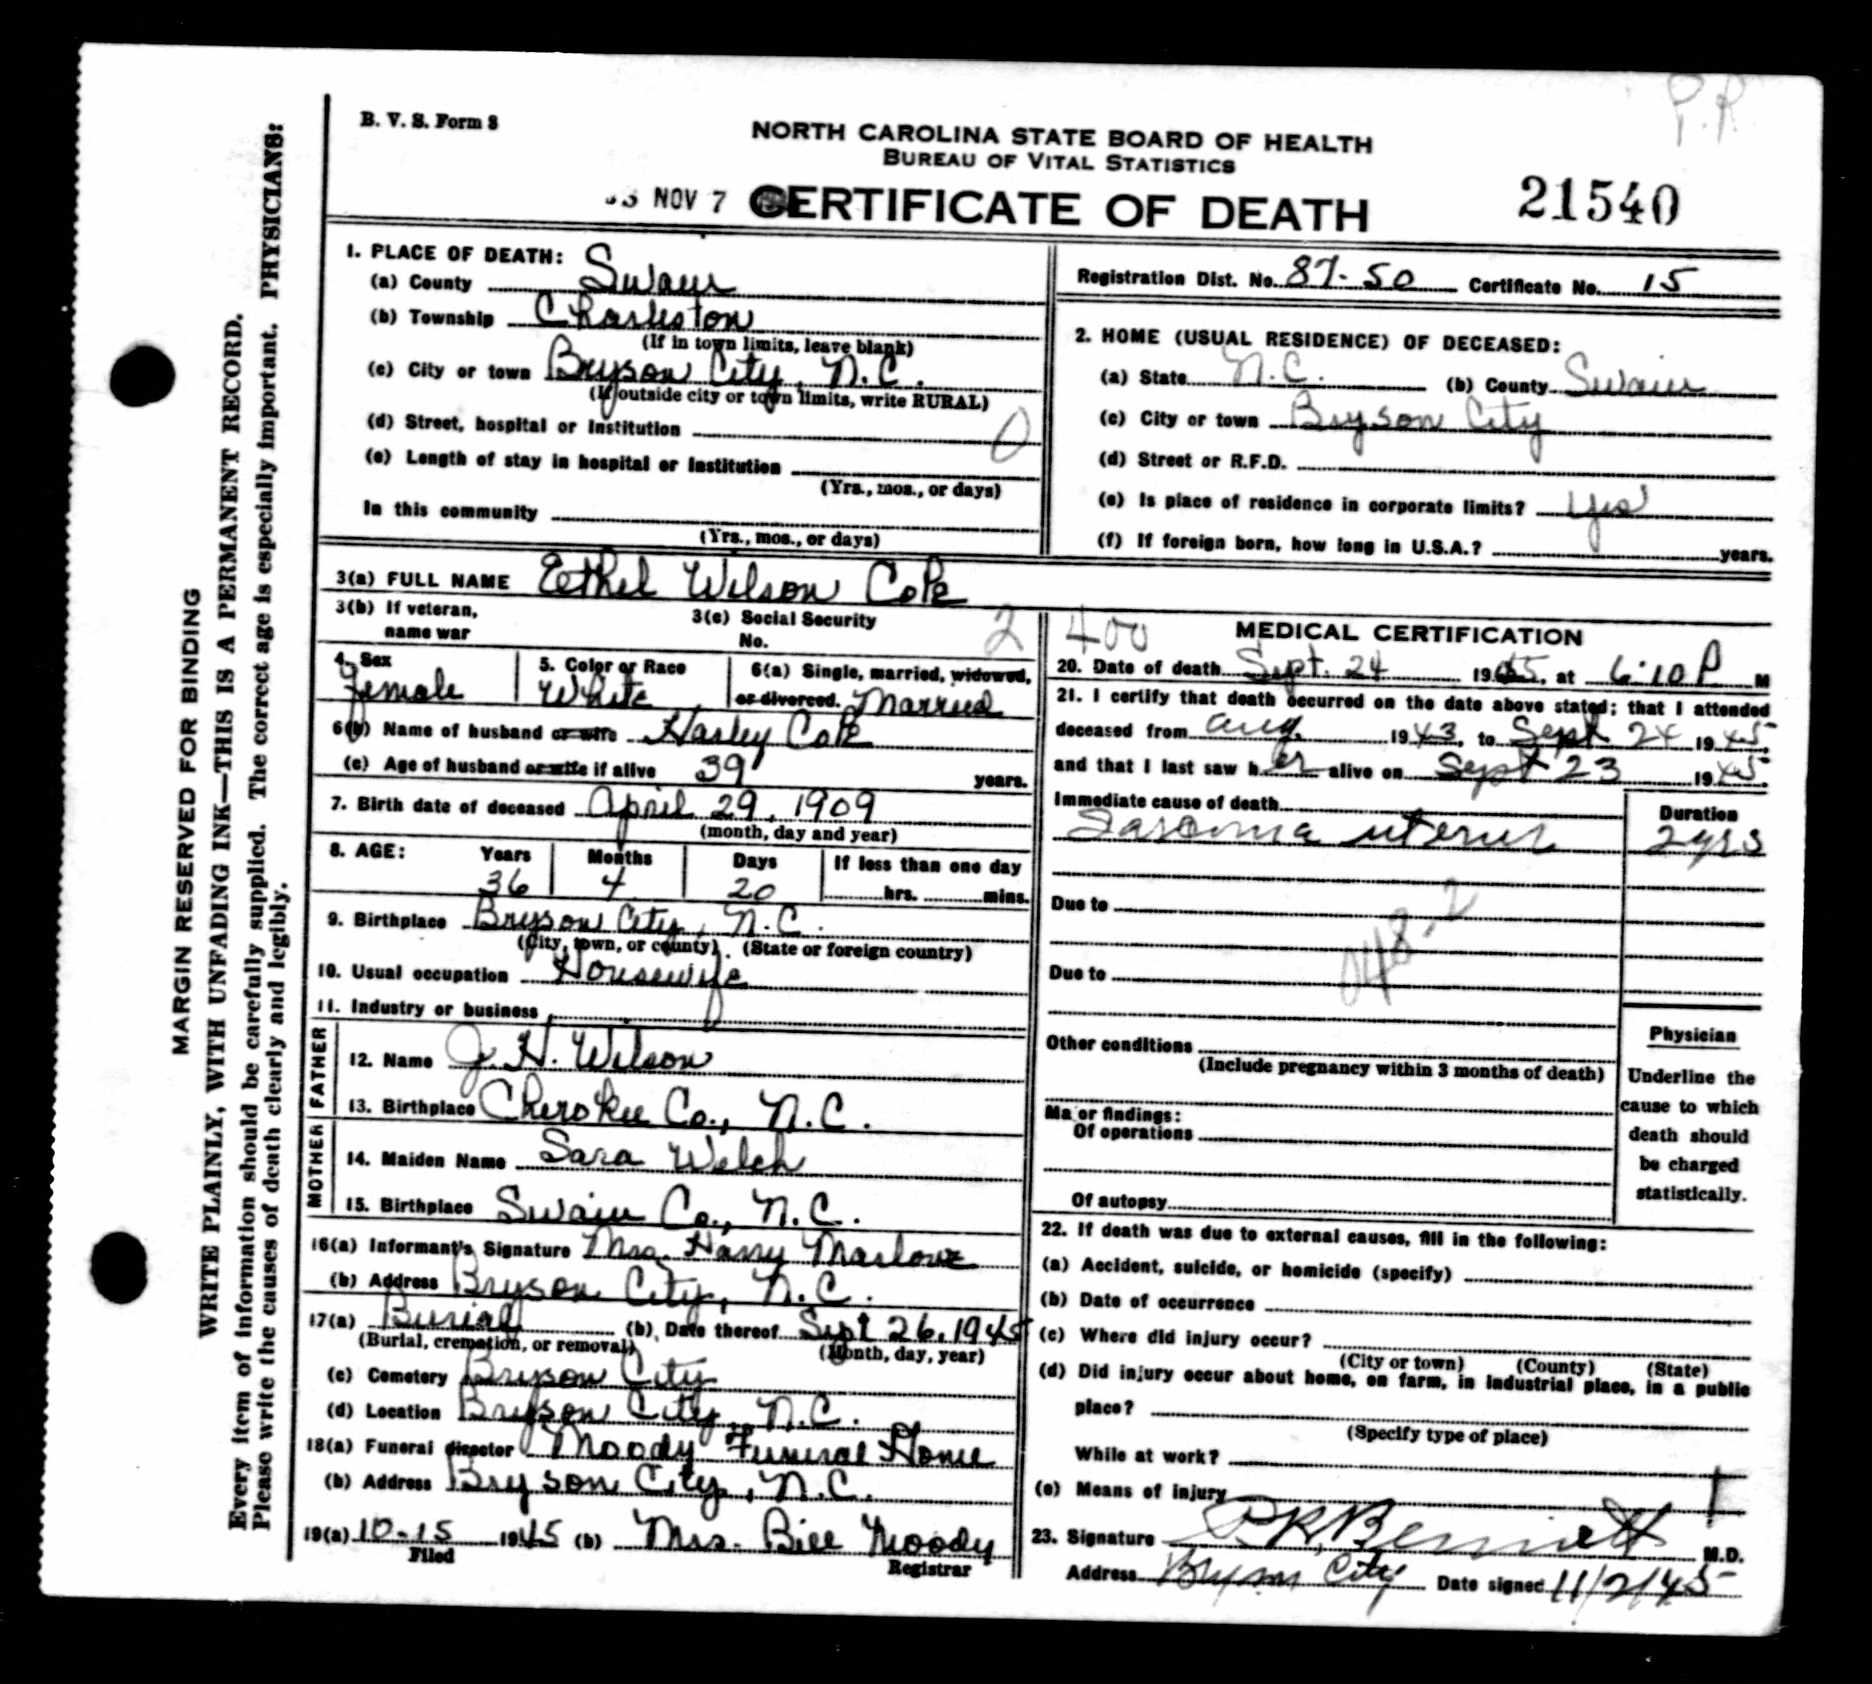 P.R
B. V. S. Form 8
NORTH CAROLINA STATE BOARD OF HEALTH
BUREAU OF VITAL STATISTICS
NOV 7 CERTIFICATE OF DEATH 21540
MARGIN RESERVED FOR BINDING
WRITE PLAINLY, WITH UNFADING INK—THIS IS A PERMANENT RECORD.
Every item of information should be carefully supplied. The correct age is especially important. PHYSICIANS:
Please write the causes of death clearly and legibly.
1. PLACE OF DEATH:
(a) County Swain
(b) Township Charleston
(If in town limits, leave blank)
(c) City or town Bryson City, N.C.
(If outside city or town limits, write RURAL)
(d) Street, hospital or institution
(e) Length of stay in hospital or institution
(Yrs., mos., or days)
In this community
(Yrs., mos., or days)
Registration Dist. No. 87-50 Certificate No. 15
2. HOME (USUAL RESIDENCE) OF DECEASED:
(a) State N.C. (b) County Swain
(c) City or town Bryson City
(d) Street or R.F.D.
(e) Is place of residence in corporate limits? Yes
(f) If foreign born, how long in U.S.A.? years.
3(a) FULL NAME Eethel Wilson Cope
3(b) If veteran, name war
3(c) Social Security No.
2 400
4. Sex Female
5. Color or Race White
6(a) Single, married, widowed, or divorced. Married
6(b) Name of husband or wife Harley Cope
(c) Age of husband or wife if alive 39 years.
7. Birth date of deceased April 29, 1909
(month, day and year)
8. AGE: Years Months Days If less than one day
36 4 20 hrs. mins.
9. Birthplace Bryson City, N.C.
(City, town, or county) (State or foreign country)
10. Usual occupation Housewife
11. Industry or business
FATHER
12. Name J. H. Wilson
13. Birthplace Cherokee Co., N.C.
MOTHER
14. Maiden Name Sara Welch
15. Birthplace Swain Co., N.C.
16(a) Informant's Signature Mrs. Harry Marlowe
(b) Address Bryson City, N.C.
17(a) Burial (b) Date thereof Sept 26, 1945
(Burial, cremation, or removal) (Month, day, year)
(c) Cemetery Bryson City
(d) Location Bryson City, N.C.
18(a) Funeral director Moody Funeral Home
(b) Address Bryson City, N.C.
19(a) 10-15 1945 (b) Mrs. Bill Moody
Filed Registrar
MEDICAL CERTIFICATION
20. Date of death Sept. 24 1945, at 6:10 P M
21. I certify that death occurred on the date above stated; that I attended
deceased from Aug. 1943, to Sept 24 1945,
and that I last saw her alive on Sept 23 1945.
Immediate cause of death Duration
Sarcoma uterus 2 yrs
Due to
048-2
Due to
Other conditions
(Include pregnancy within 3 months of death)
Major findings:
Of operations
Of autopsy
Physician
Underline the
cause to which
death should
be charged
statistically.
22. If death was due to external causes, fill in the following:
(a) Accident, suicide, or homicide (specify)
(b) Date of occurrence
(c) Where did injury occur?
(City or town) (County) (State)
(d) Did injury occur about home, on farm, in industrial place, in a public
place?
(Specify type of place)
While at work?
(e) Means of injury
23. Signature P. R. Bennett M.D.
Address Bryson City Date signed 11/2/45